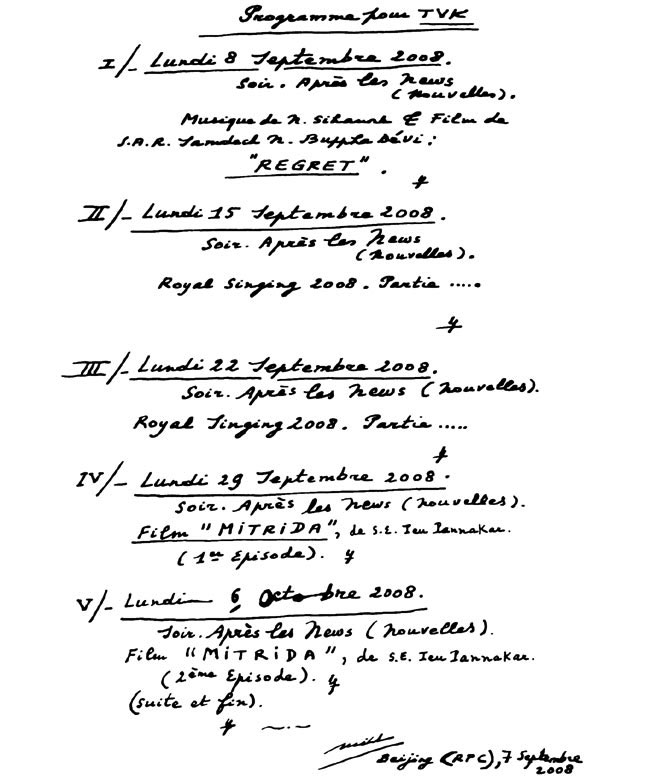 Programme pour TVK
I/- Lundi 8 Septembre 2008.
Soir. Après les News
(Nouvelles).
Musique de N. Sihanouk & Film de
S.A.R. Samdech N. Buppha Dévi :
"REGRET".
II/- Lundi 15 Septembre 2008.
Soir. Après les News
(Nouvelles).
Royal Singing 2008. Partie .....
III/- Lundi 22 Septembre 2008.
Soir. Après les News (Nouvelles).
Royal Singing 2008. Partie .....
IV/- Lundi 29 Septembre 2008.
Soir. Après les News (Nouvelles).
Film "MiTRiDA", de S.E. Ieu Pannakar.
(1er Episode).
V/- Lundi 6 Octobre 2008.
Soir. Après les News (Nouvelles).
Film "MiTRiDA", de S.E. Ieu Pannakar.
(2ème Episode).
(suite et fin).
Beijing (RPC), 7 Septembre
2008